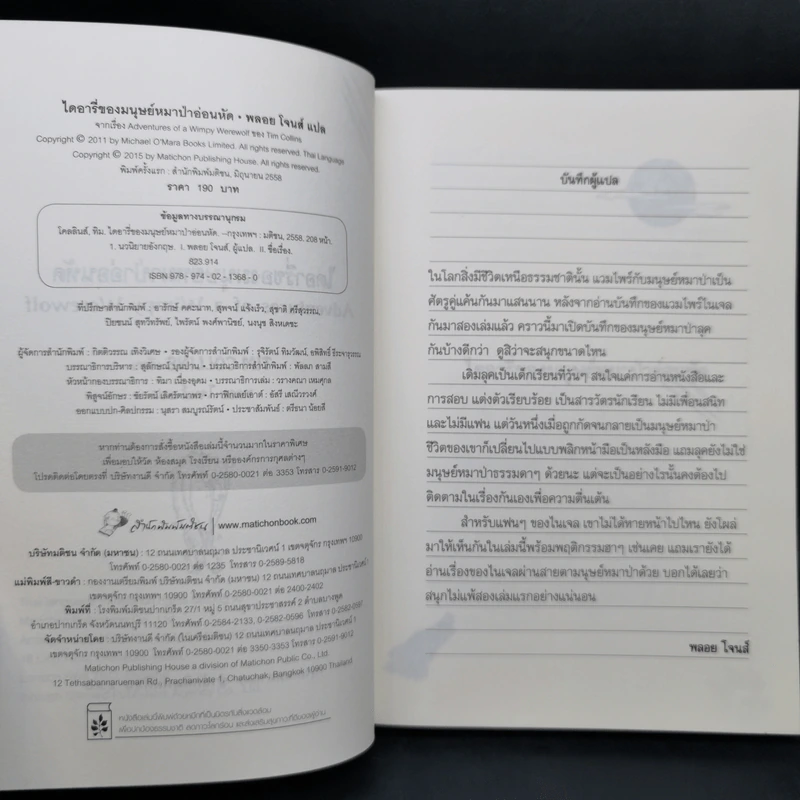 ไดอารี่ของมนุษย์หมาป่าอ่อนหัด • พลอย โจนส์ แปล
จากเรื่อง Adventures of a Wimpy Werewolf ของ Tim Collins
Copyright © 2011 by Michael O'Mara Books Limited. All rights reserved. Thai Language
Copyright © 2015 by Matichon Publishing House. All rights reserved.
พิมพ์ครั้งแรก : สำนักพิมพ์มติชน, มิถุนายน 2558
ราคา 190 บาท
ข้อมูลทางบรรณานุกรม
โคลลินส์, ทิม. ไดอารี่ของมนุษย์หมาป่าอ่อนหัด. --กรุงเทพฯ : มติชน, 2558. 208 หน้า.
1. นวนิยายอังกฤษ. I. พลอย โจนส์, ผู้แปล. II. ชื่อเรื่อง.
823.914
ISBN 978 - 974 - 02 - 1368 - 0
ที่ปรึกษาสำนักพิมพ์ : อารักษ์ คคะนาท, สุพจน์ แจ้งเร็ว, สุชาติ ศรีสุวรรณ,
ปิยชนน์ สุทวีทรัพย์, ไพรัตน์ พงศ์พานิชย์, นงนุช สิงหเดชะ
ผู้จัดการสำนักพิมพ์ : กิตติวรรณ เทิงวิเศษ • รองผู้จัดการสำนักพิมพ์ : รุจิรัตน์ ทิมวัฒน์, อพิสิทธิ์ ธีระจารุวรรณ
บรรณาธิการบริหาร : สุลักษณ์ บุนปาน • บรรณาธิการสำนักพิมพ์ : พัลลภ สามสี
หัวหน้ากองบรรณาธิการ : พิมา เนื่องอุดม • บรรณาธิการเล่ม : วรางคณา เหมศุกล
พิสูจน์อักษร : ชัยรัตน์ เลิศรัตนาพร • กราฟิกเลย์เอาต์ : อัสรี เสณีวรวงศ์
ออกแบบปก-ศิลปกรรม : นุสรา สมบูรณ์รัตน์ • ประชาสัมพันธ์ : ตรีธนา น้อยสี
หากท่านต้องการสั่งซื้อหนังสือเล่มนี้จำนวนมากในราคาพิเศษ
เพื่อมอบให้วัด ห้องสมุด โรงเรียน หรือองค์กรการกุศลต่างๆ
โปรดติดต่อโดยตรงที่ บริษัทงานดี จำกัด โทรศัพท์ 0-2580-0021 ต่อ 3353 โทรสาร 0-2591-9012
สำนักพิมพ์มติชน | www.matichonbook.com
บริษัทมติชน จำกัด (มหาชน) : 12 ถนนเทศบาลนฤมาล ประชานิเวศน์ 1 เขตจตุจักร กรุงเทพฯ 10900
โทรศัพท์ 0-2580-0021 ต่อ 1235 โทรสาร 0-2589-5818
แม่พิมพ์สี-ขาวดำ : กองงานเตรียมพิมพ์ บริษัทมติชน จำกัด (มหาชน) 12 ถนนเทศบาลนฤมาล ประชานิเวศน์ 1
เขตจตุจักร กรุงเทพฯ 10900 โทรศัพท์ 0-2580-0021 ต่อ 2400-2402
พิมพ์ที่ : โรงพิมพ์มติชนปากเกร็ด 27/1 หมู่ 5 ถนนสุขาประชาสรรค์ 2 ตำบลบางพูด
อำเภอปากเกร็ด จังหวัดนนทบุรี 11120 โทรศัพท์ 0-2584-2133, 0-2582-0596 โทรสาร 0-2582-0597
จัดจำหน่ายโดย : บริษัทงานดี จำกัด (ในเครือมติชน) 12 ถนนเทศบาลนฤมาล ประชานิเวศน์ 1
เขตจตุจักร กรุงเทพฯ 10900 โทรศัพท์ 0-2580-0021 ต่อ 3350-3353 โทรสาร 0-2591-9012
Matichon Publishing House a division of Matichon Public Co., Ltd.
12 Tethsabannarueman Rd., Prachanivate 1, Chatuchak, Bangkok 10900 Thailand
หนังสือเล่มนี้พิมพ์ด้วยหมึกที่เป็นมิตรกับสิ่งแวดล้อม
เพื่อปกป้องธรรมชาติ ลดภาวะโลกร้อน และส่งเสริมสุขภาวะที่ดีของผู้อ่าน
บันทึกผู้แปล
ในโลกสิ่งมีชีวิตเหนือธรรมชาตินั้น แวมไพร์กับมนุษย์หมาป่าเป็น
ศัตรูคู่แค้นกันมาแสนนาน หลังจากอ่านบันทึกของแวมไพร์ไนเจล
กันมาสองเล่มแล้ว คราวนี้มาเปิดบันทึกของมนุษย์หมาป่าลุค
กันบ้างดีกว่า ดูสิว่าจะสนุกขนาดไหน
เดิมลุคเป็นเด็กเรียนที่วันๆ สนใจแค่การอ่านหนังสือและ
การสอบ แต่งตัวเรียบร้อย เป็นสารวัตรนักเรียน ไม่มีเพื่อนสนิท
และไม่มีแฟน แต่วันหนึ่งเมื่อถูกกัดจนกลายเป็นมนุษย์หมาป่า
ชีวิตของเขาก็เปลี่ยนไปแบบพลิกหน้ามือเป็นหลังมือ แถมลุคยังไม่ใช่
มนุษย์หมาป่าธรรมดาๆ ด้วยนะ แต่จะเป็นอย่างไรนั้นคงต้องไป
ติดตามในเรื่องกันเองเพื่อความตื่นเต้น
สำหรับแฟนๆ ของไนเจล เขาไม่ได้หายหน้าไปไหน ยังโผล่
มาให้เห็นกันในเล่มนี้พร้อมพฤติกรรมฮาๆ เช่นเคย แถมเรายังได้
อ่านเรื่องของไนเจลผ่านสายตามนุษย์หมาป่าด้วย บอกได้เลยว่า
สนุกไม่แพ้สองเล่มแรกอย่างแน่นอน
พลอย โจนส์